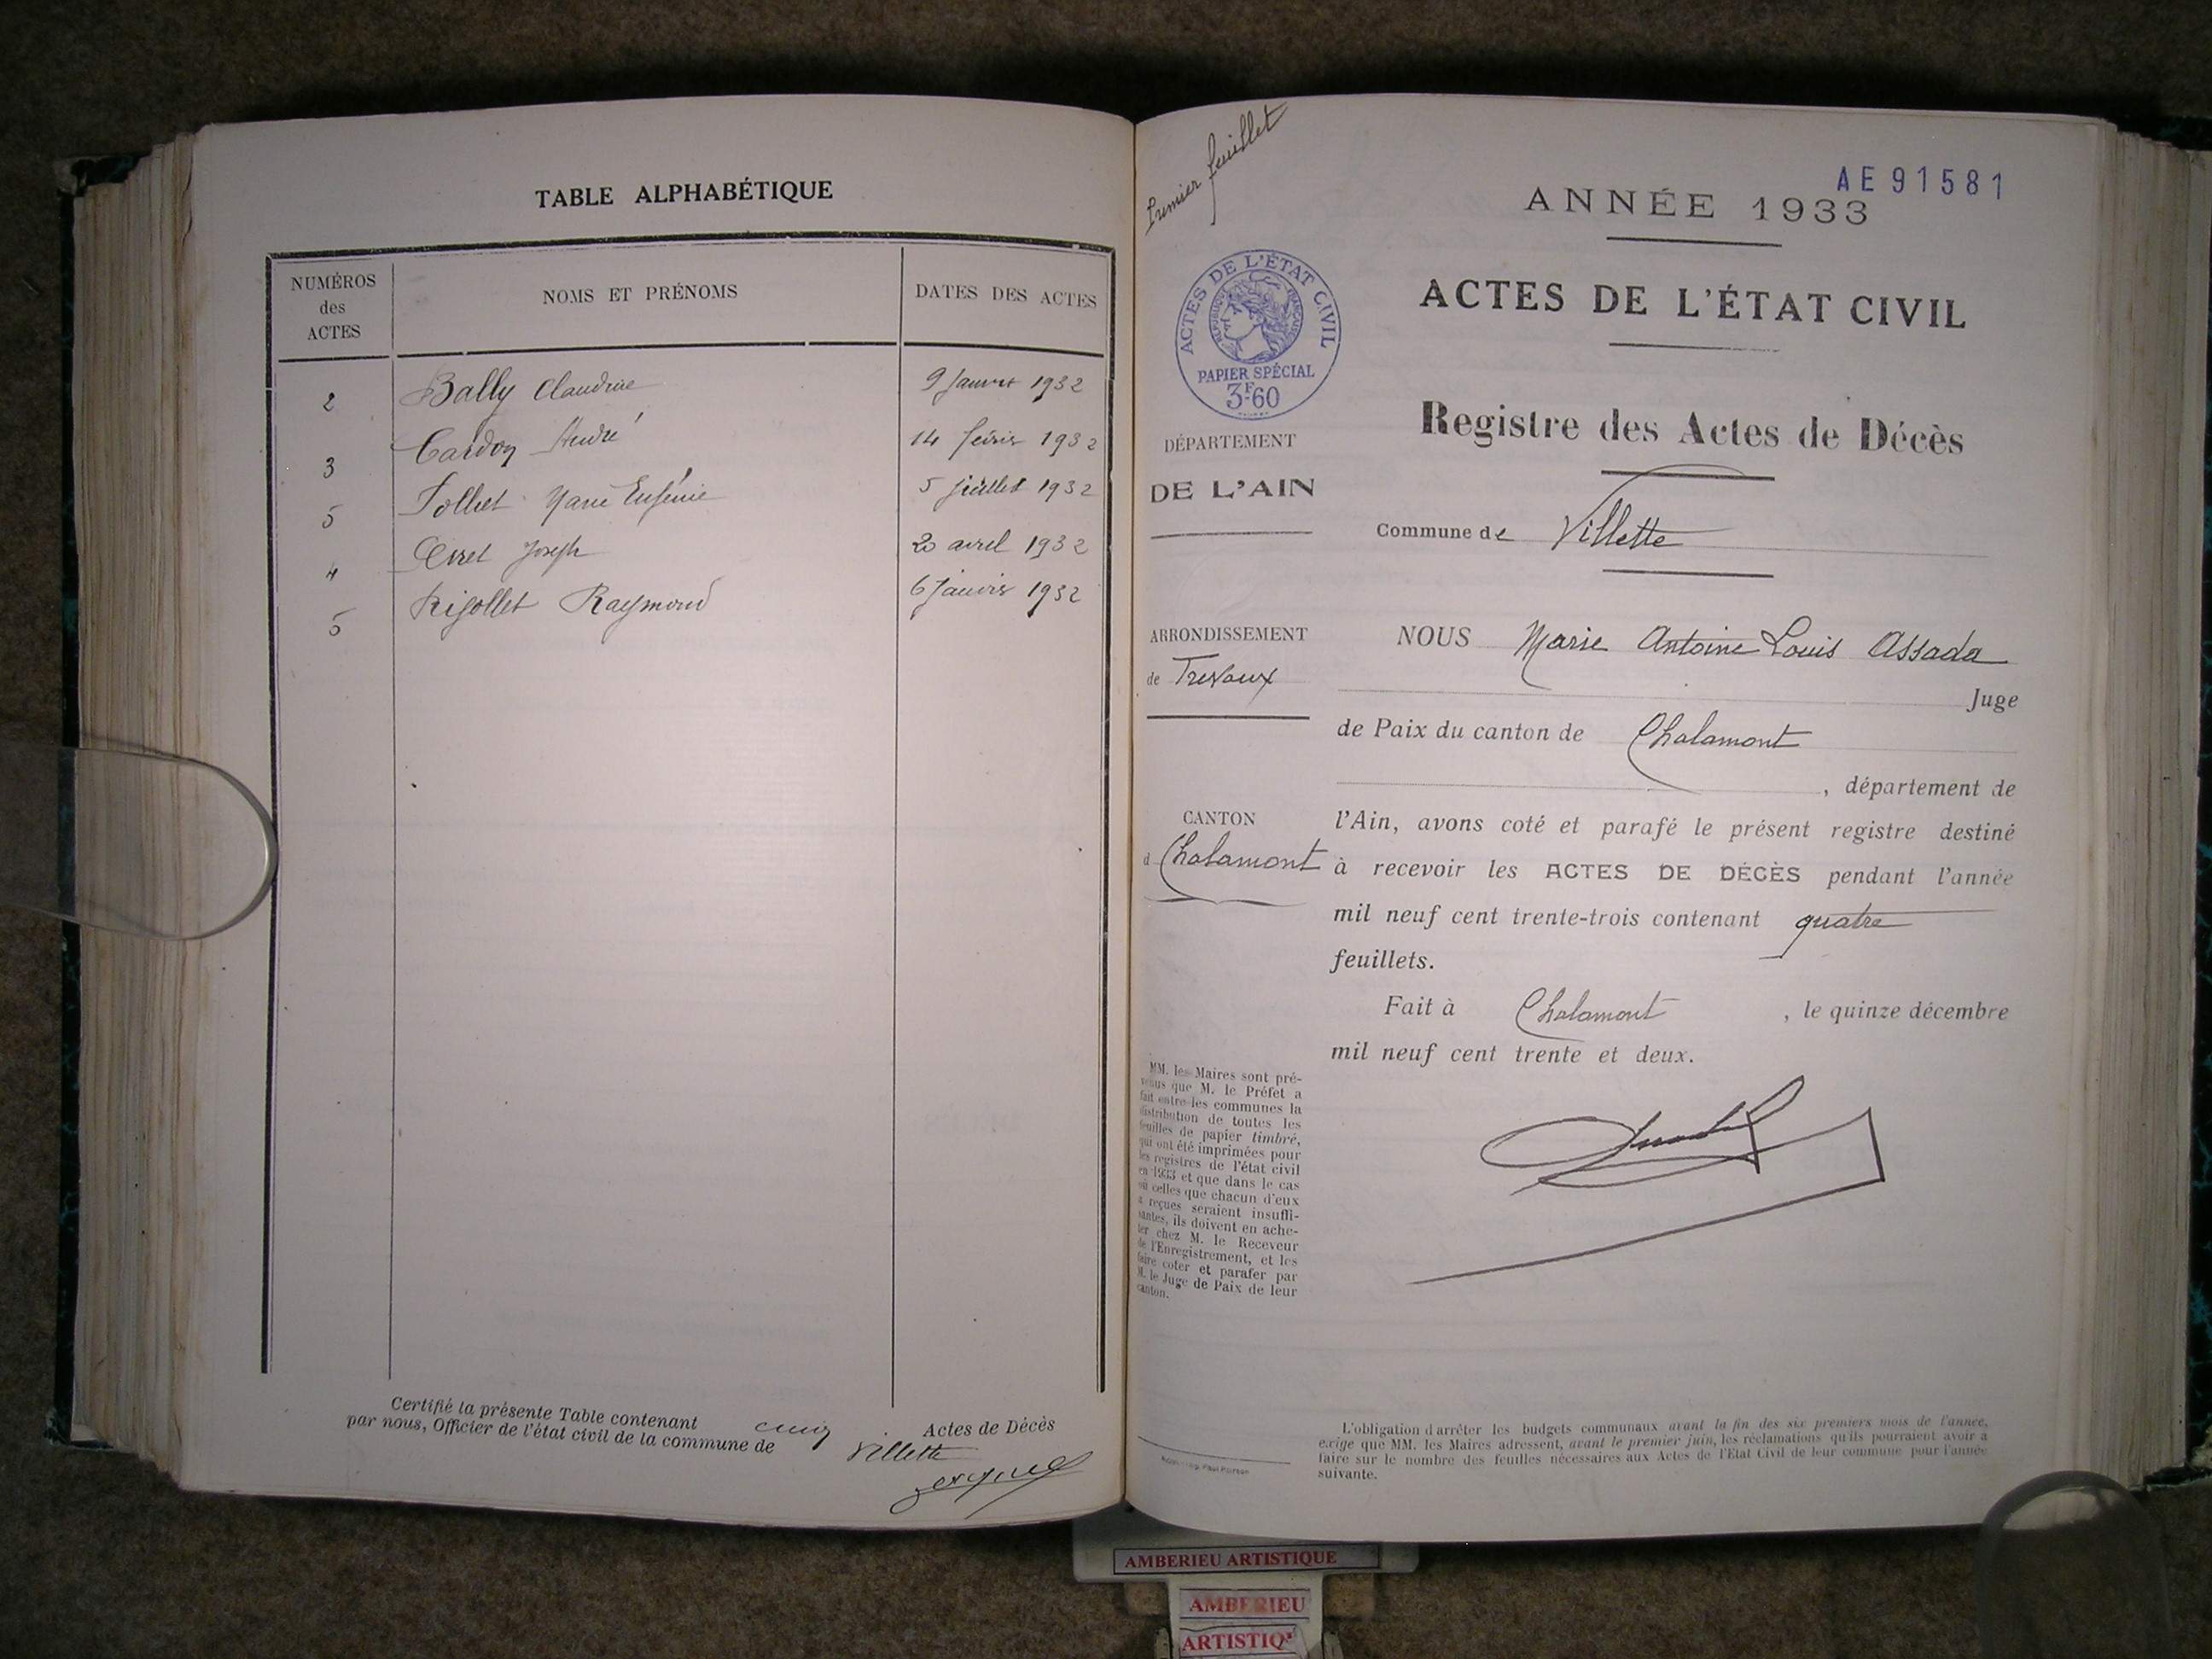 TABLE ALPHABÉTIQUE
NUMÉROS des ACTES
NOMS ET PRÉNOMS
DATES DES ACTES
2 Bally Claudine 9 Janvier 1932
3 Cardon André 14 février 1932
5 Marie Eugénie 5 juillet 1932
4 Joseph 20 avril 1932
5 Rigollet Raymond 6 Janvier 1932
Certifié la présente Table contenant cinq Actes de Décès
par nous, Officier de l'état civil de la commune de Villette
Premier feuillet
AE 91581
ANNÉE 1933
ACTES DE L'ÉTAT CIVIL
RÉPUBLIQUE FRANÇAISE
PAPIER SPÉCIAL
3F60
ACTES DE L'ÉTAT CIVIL
Registre des Actes de Décès
DÉPARTEMENT
DE L'AIN
Commune de Villette
ARRONDISSEMENT
de Trevoux
NOUS Marie Antoine Louis Assada
Juge
de Paix du canton de Chalamont
, département de
CANTON
d Chalamont
l'Ain, avons coté et parafé le présent registre destiné
à recevoir les ACTES DE DÉCÈS pendant l'année
mil neuf cent trente-trois contenant quatre
feuillets.
Fait à Chalamont , le quinze décembre
mil neuf cent trente et deux.
MM. les Maires sont pré-
venus que M. le Préfet a
fait entre les communes la
distribution de toutes les
feuilles de papier timbré,
qui ont été imprimées pour
les registres de l'état civil
en 1933 et que dans le cas
où celles que chacun d'eux
a reçues seraient insuffi-
santes, ils doivent en ache-
ter chez M. le Receveur
de l'Enregistrement, et les
faire coter et parafer par
M. le Juge de Paix de leur
canton.
L'obligation d'arrêter les budgets communaux avant la fin des six premiers mois de l'année,
exige que MM. les Maires adressent, avant le premier juin, les réclamations qu'ils pourraient avoir à
faire sur le nombre des feuilles nécessaires aux Actes de l'Etat Civil de leur commune pour l'année
suivante.
AMBERIEU ARTISTIQUE
AMBERIEU
ARTISTIQ